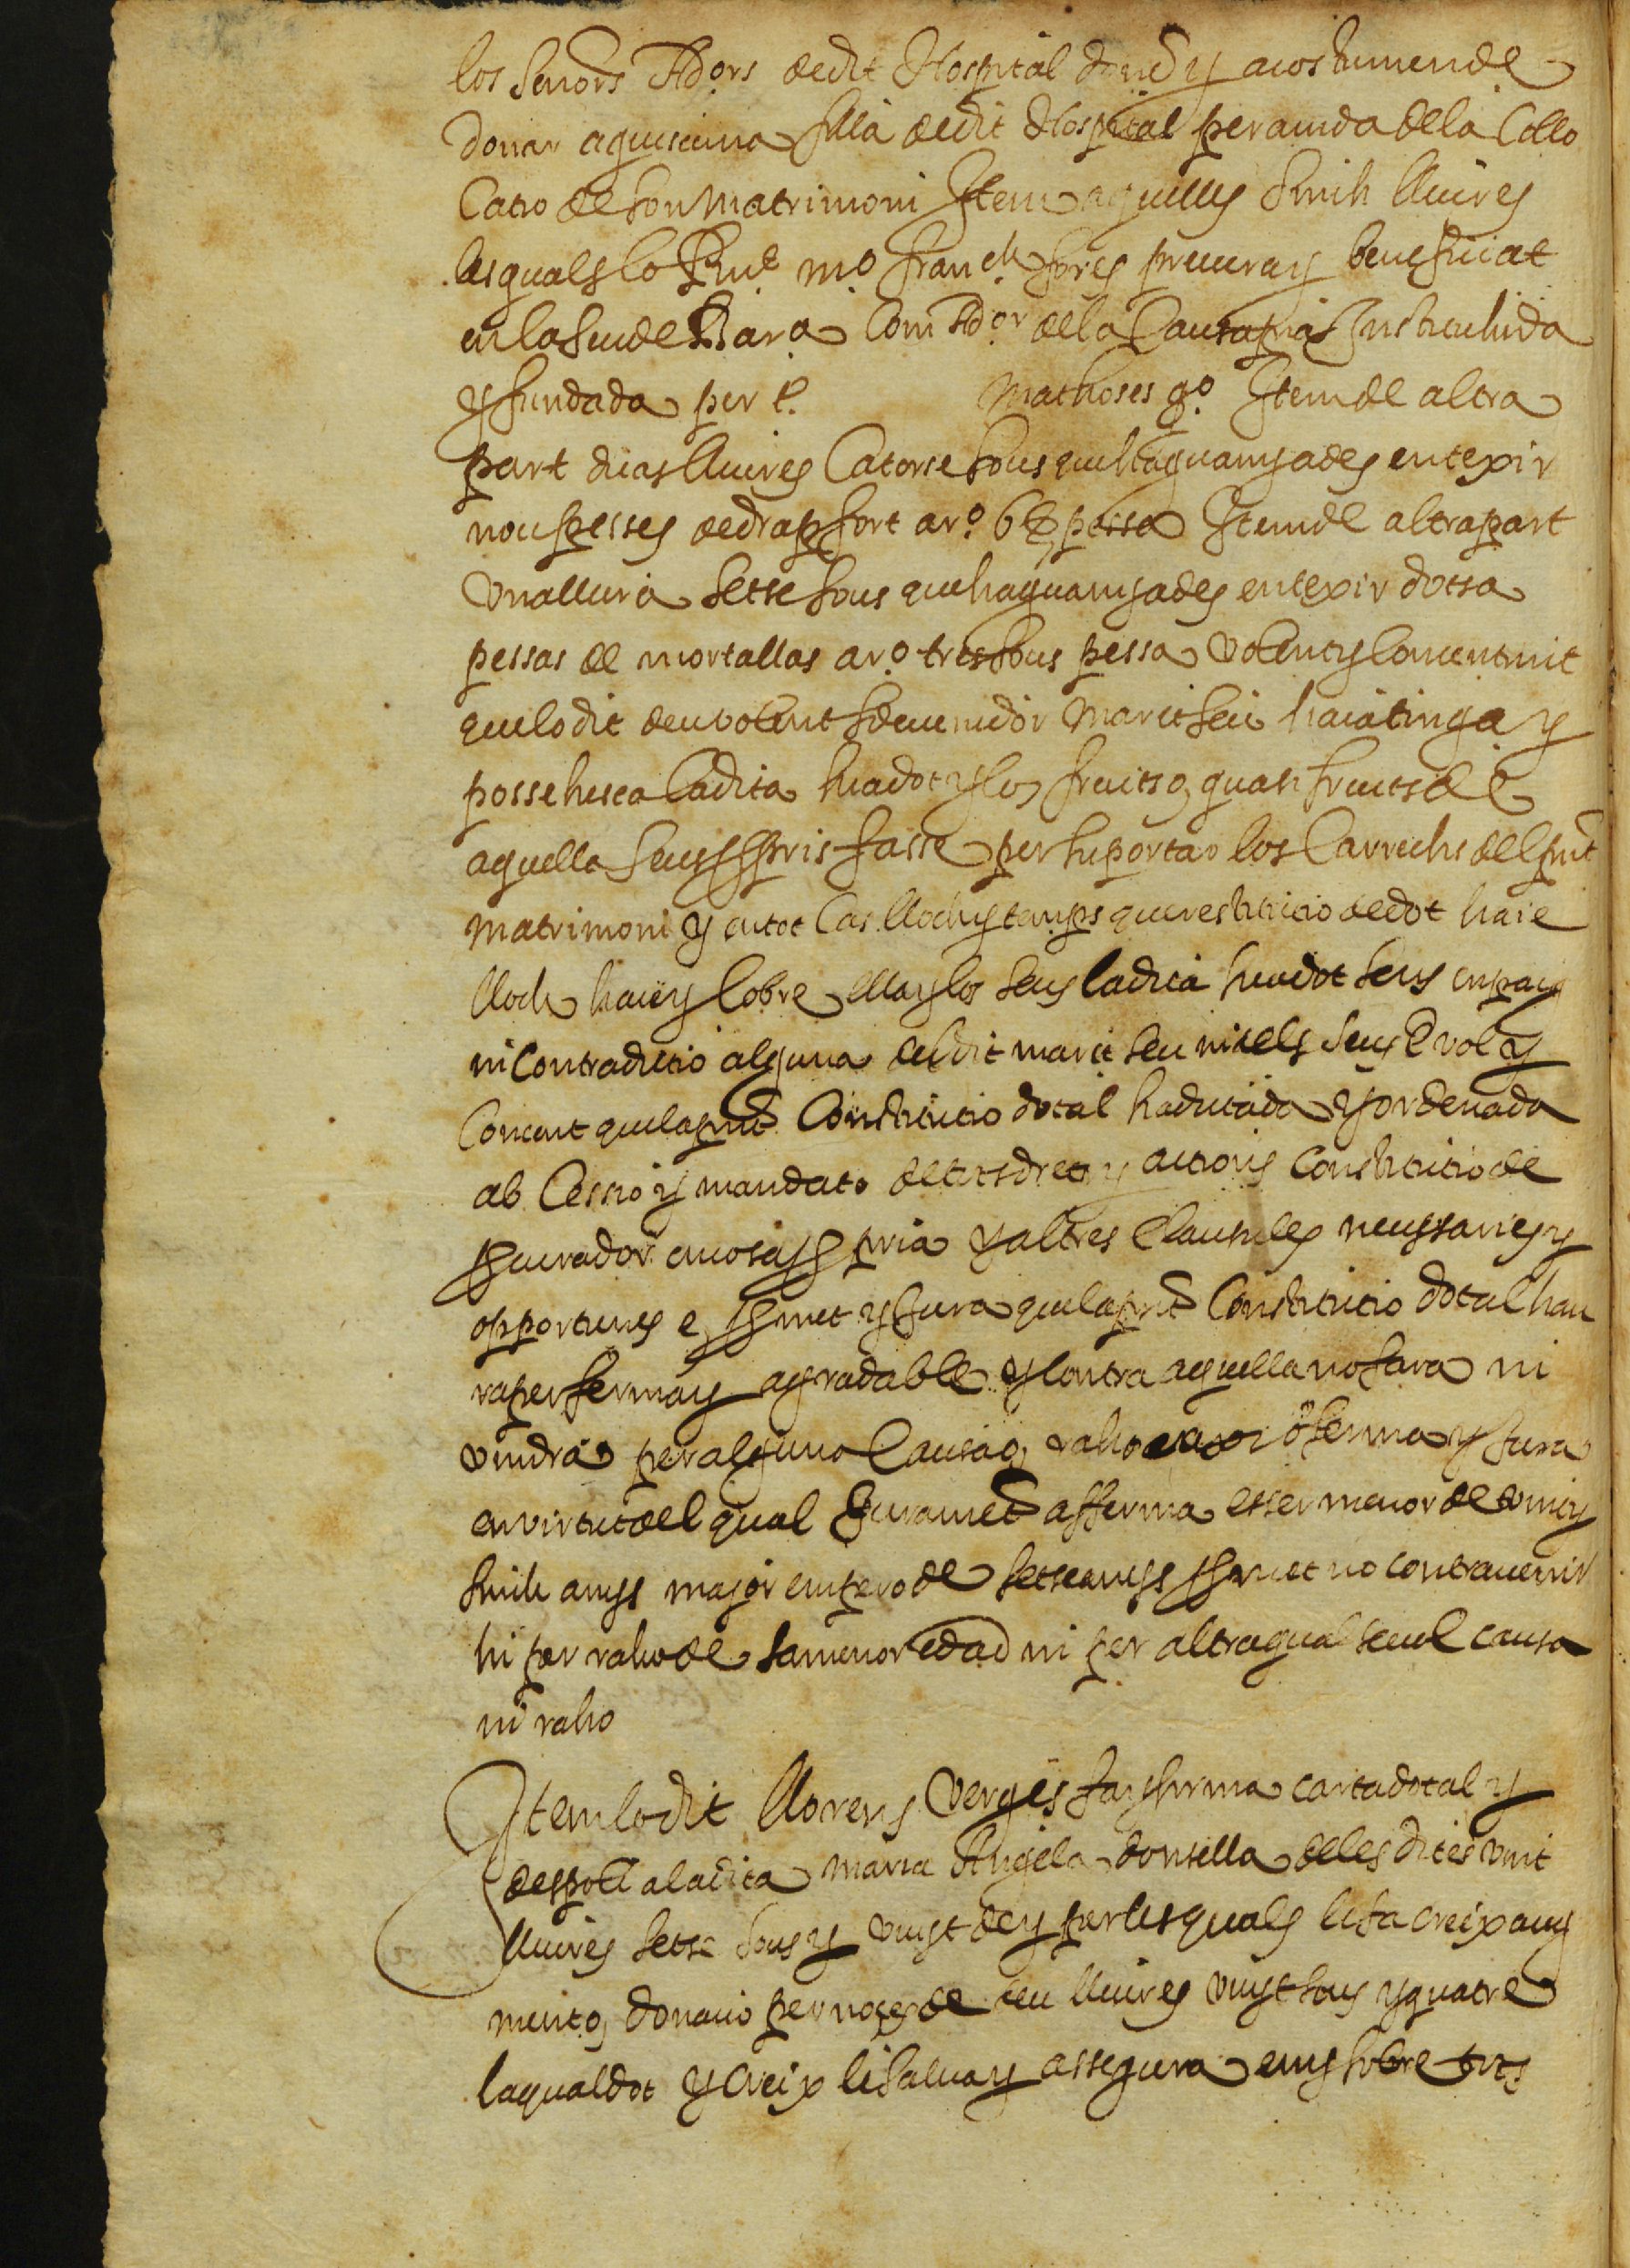 los Senors Adors de dit Hospital donen y acostumen de
donar a quiscuna filla de dit Hospital per aiuda de la Collo
catio de son Matrimoni Item aquelles sinch lliures
les quals lo Rnt mo franch fores prevere y beneficiat
en la Seu de Bara Com Ador de la Causa pia Instituhida
y fundada per t. Mathoses qo Item de altra
part duas lliures Catorse sous que ha guanyades en texir
nou pesses de drap fort a ro 6 ss pessa Item de altra part
una lliura Setse sous que ha guanyades en texir dotsa
pessas de mortallas a ro tres sous pessa volent y consentint
que lo dit devotent sdevenidor Marit seu haia tinga y
possehesca la dita sua dot y los fruits o, quasi fruits de
aquella seus propris fasse per suportar los Carrechs del pnt
Matrimoni y en tot Cas lloch y temps que restitutio de dot haie
lloch haie y cobre ella y los seus la dita sua dot sens enpaig
ni Contradictio alguna del dit marit seu ni dels seus E vol y
Concent que la pnt Constitutio dotal sia dictada y ordenada
ab Cessio y mandato de tots drets y actions Constitutio de
procurador en cosa propria y altres Clausules necessaries y
opportunes e, promet y jura que la pnt Constitutio dotal hau
ra per ferma y agradable y contra aquella no fara ni
vindra per alguna Causa o, raho e axi o ferma y jura
en virtut del qual Jurament afferma esser menor de vint y
sinch anys major empero de setse anys promet no contravenir
hi per raho de sa menor edad ni per altra qualsevol causa
ni raho
Item lo dit Llorens Verges fa y firma carta dotal y
de espoli a la dita Maria Angela donsella de les dites vuit
lliures setse sous y vuyt de y per les quals li fa creix aug
ment o, donatio per noces de deu lliures vuyt sous y quatre
la qual dot y creix li salva y assegura en y sobre tots